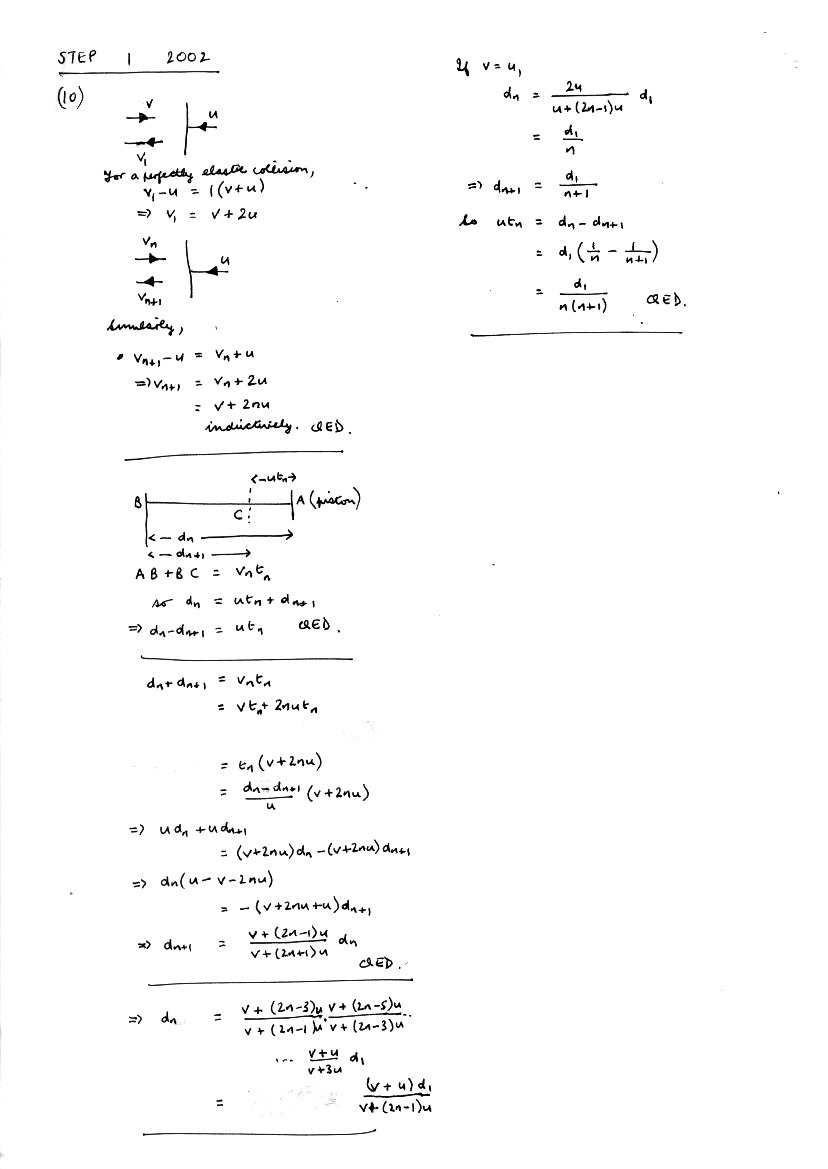 STEP 1 2002
(10)
v
u
v₁
For a perfectly elastic collision,
v₁ - u = 1(v+u)
=> v₁ = v + 2u
vₙ
u
vₙ₊₁
Similarly,
vₙ₊₁ - u = vₙ + u
=> vₙ₊₁ = vₙ + 2u
= v + 2nu
inductively. QED.
<-utₙ->
B A (piston)
C
<- dₙ ->
<- dₙ₊₁ ->
AB + BC = vₙtₙ
so dₙ = utₙ + dₙ₊₁
=> dₙ - dₙ₊₁ = utₙ QED.
dₙ + dₙ₊₁ = vₙtₙ
= vtₙ + 2nutₙ
= tₙ(v+2nu)
= (dₙ - dₙ₊₁)/u (v+2nu)
=> udₙ + udₙ₊₁
= (v+2nu)dₙ - (v+2nu)dₙ₊₁
=> dₙ(u - v - 2nu)
= -(v+2nu+u)dₙ₊₁
=> dₙ₊₁ = (v + (2n-1)u)/(v + (2n+1)u) dₙ
QED.
=> dₙ = (v + (2n-3)u)/(v + (2n-1)u) · (v + (2n-5)u)/(v + (2n-3)u) ..
... (v+u)/(v+3u) d₁
= (v+u)d₁/(v+(2n-1)u)
If v = u,
dₙ = 2u/(u+(2n-1)u) d₁
= d₁/n
=> dₙ₊₁ = d₁/(n+1)
So utₙ = dₙ - dₙ₊₁
= d₁(1/n - 1/(n+1))
= d₁/(n(n+1)) QED.